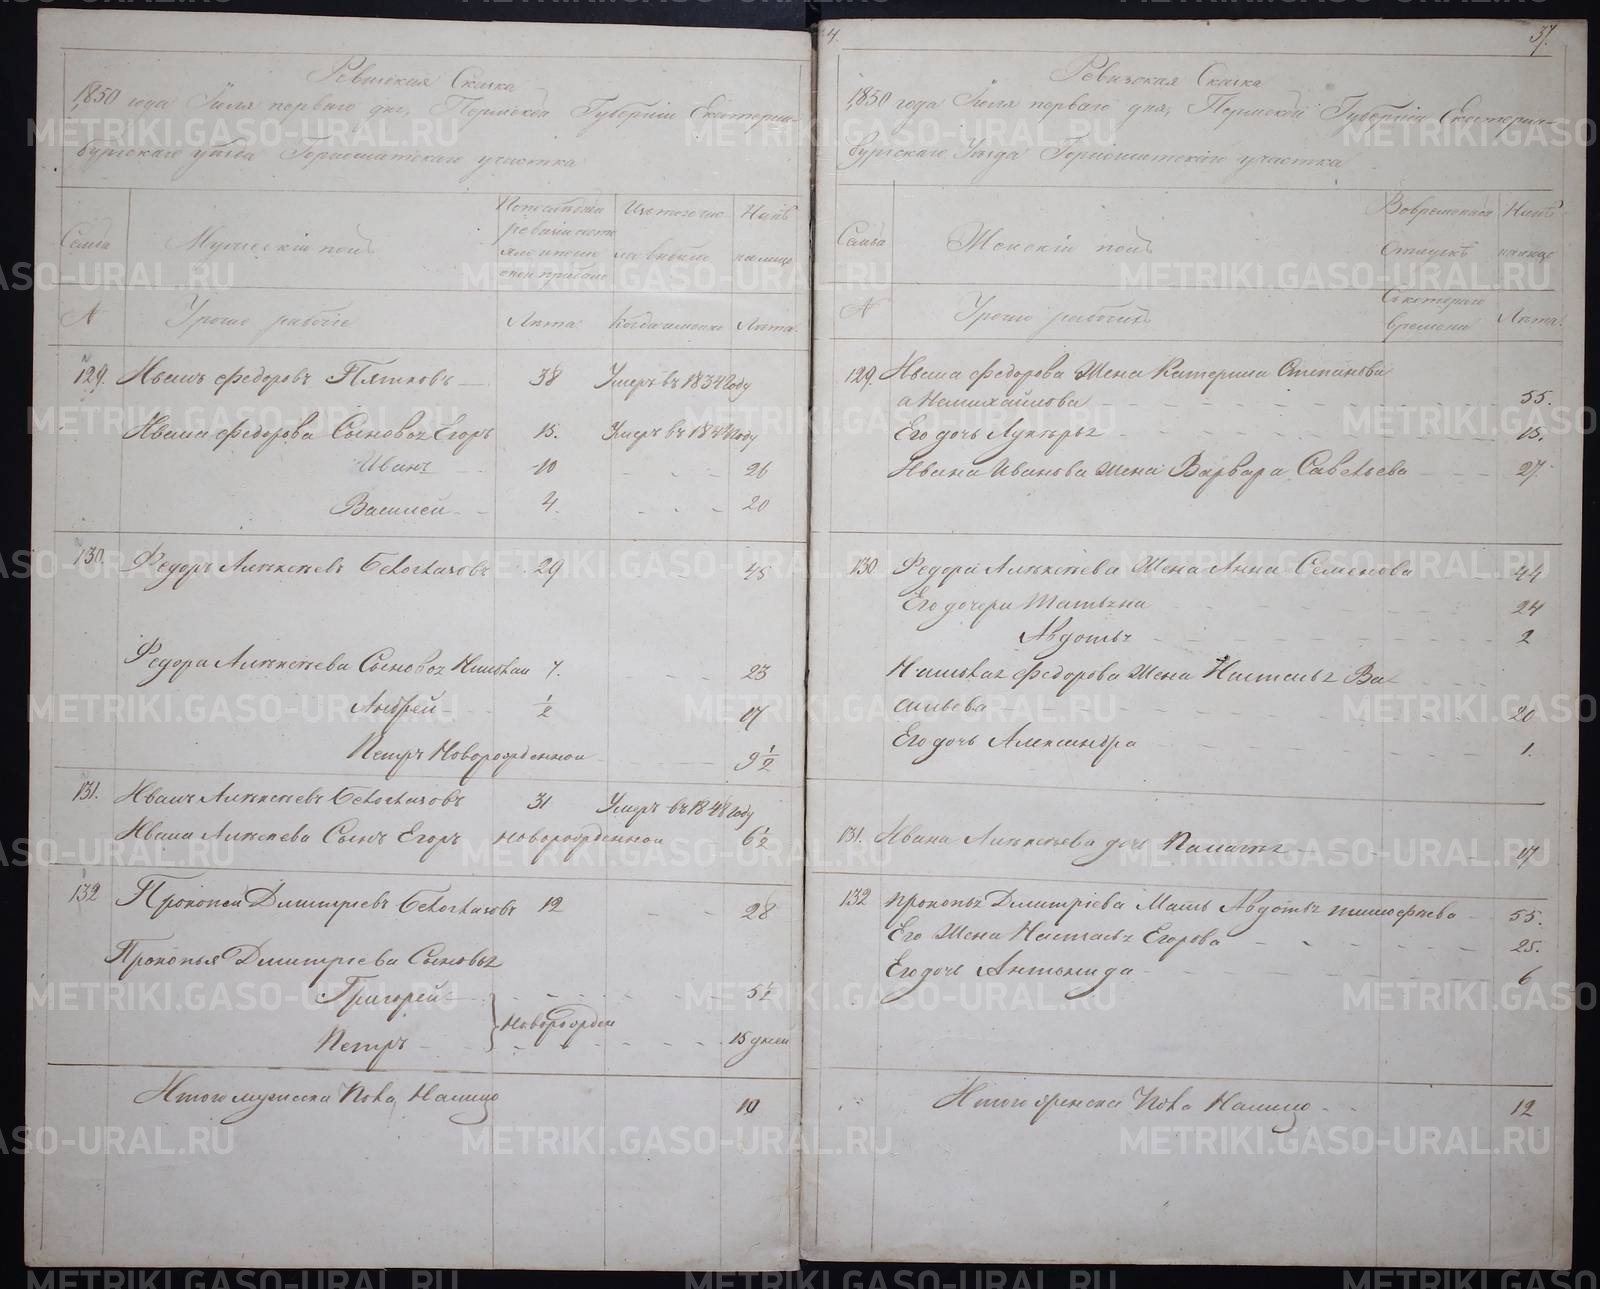 Ревизская Сказка
1850 года Июля перваго дня, Пермской Губернiи Екатерин-
бургскаго уѣзда Горнощитскаго участка
Семьи
Мужескiй полъ
По последней ревизiи состояло и после оной прибыло
Изъ того числа выбыло
Нынѣ на лицо
№
Урошно рабочiе
Лѣта
Когда именно
Лѣта
129. Иванъ Федоровъ Пятковъ 38 Умеръ въ 1834 году
Ивана Федорова Сыновья Егоръ 15. Умеръ въ году
Иванъ 10 26
Василей 4. 20
130. Федоръ Алексѣевъ 29 45
Федора Алексѣева Сыновья Николай 7. 23
Андрей 1/2 17
Петръ Новорожденной 9 1/2
131. Иванъ Алексѣевъ 31 Умеръ въ 1848 году
Ивана Алексѣева Сынъ Егоръ новорожденной 6 1/2
132 Прокопей Дмитрiевъ 12 28
Прокопья Дмитрiева Сыновья
Григорей 5 1/2
Новорожден
Петръ 15 дней
Итого мужеска Пола Налицо 10
4.
37.
Ревизская Сказка
1850 года Июля перваго дня, Пермской Губернiи Екатерин-
бургскаго Уѣзда Горнощитскаго участка
Семьи
Женскiй полъ
Во временной Отлучкѣ
Нынѣ на лицо
№
Урошно рабочихъ
Съ котораго времени
Лѣта
129. Ивана Федорова Жена Катерина Степанова
а Немихайлова 55.
Его дочь Лукерья 15.
Ивана Иванова жена Варвара Савельева 27.
130 Федора Алексѣева Жена Анна Семенова 44
Его дочери Татьяна 24
Авдотья 2
Николая Федорова Жена Настасья Ва-
сильева 20
Его дочь Александра 1.
131. Ивана Алексѣева дочь Палагея 17
132 Прокопья Дмитрiева Мать Авдотья тимофѣева 55.
Его Жена Настасья Егорова 25.
Его дочь Антонида 6
Итого женска Пола Налицо 12
METRIKI.GASO-URAL.RU